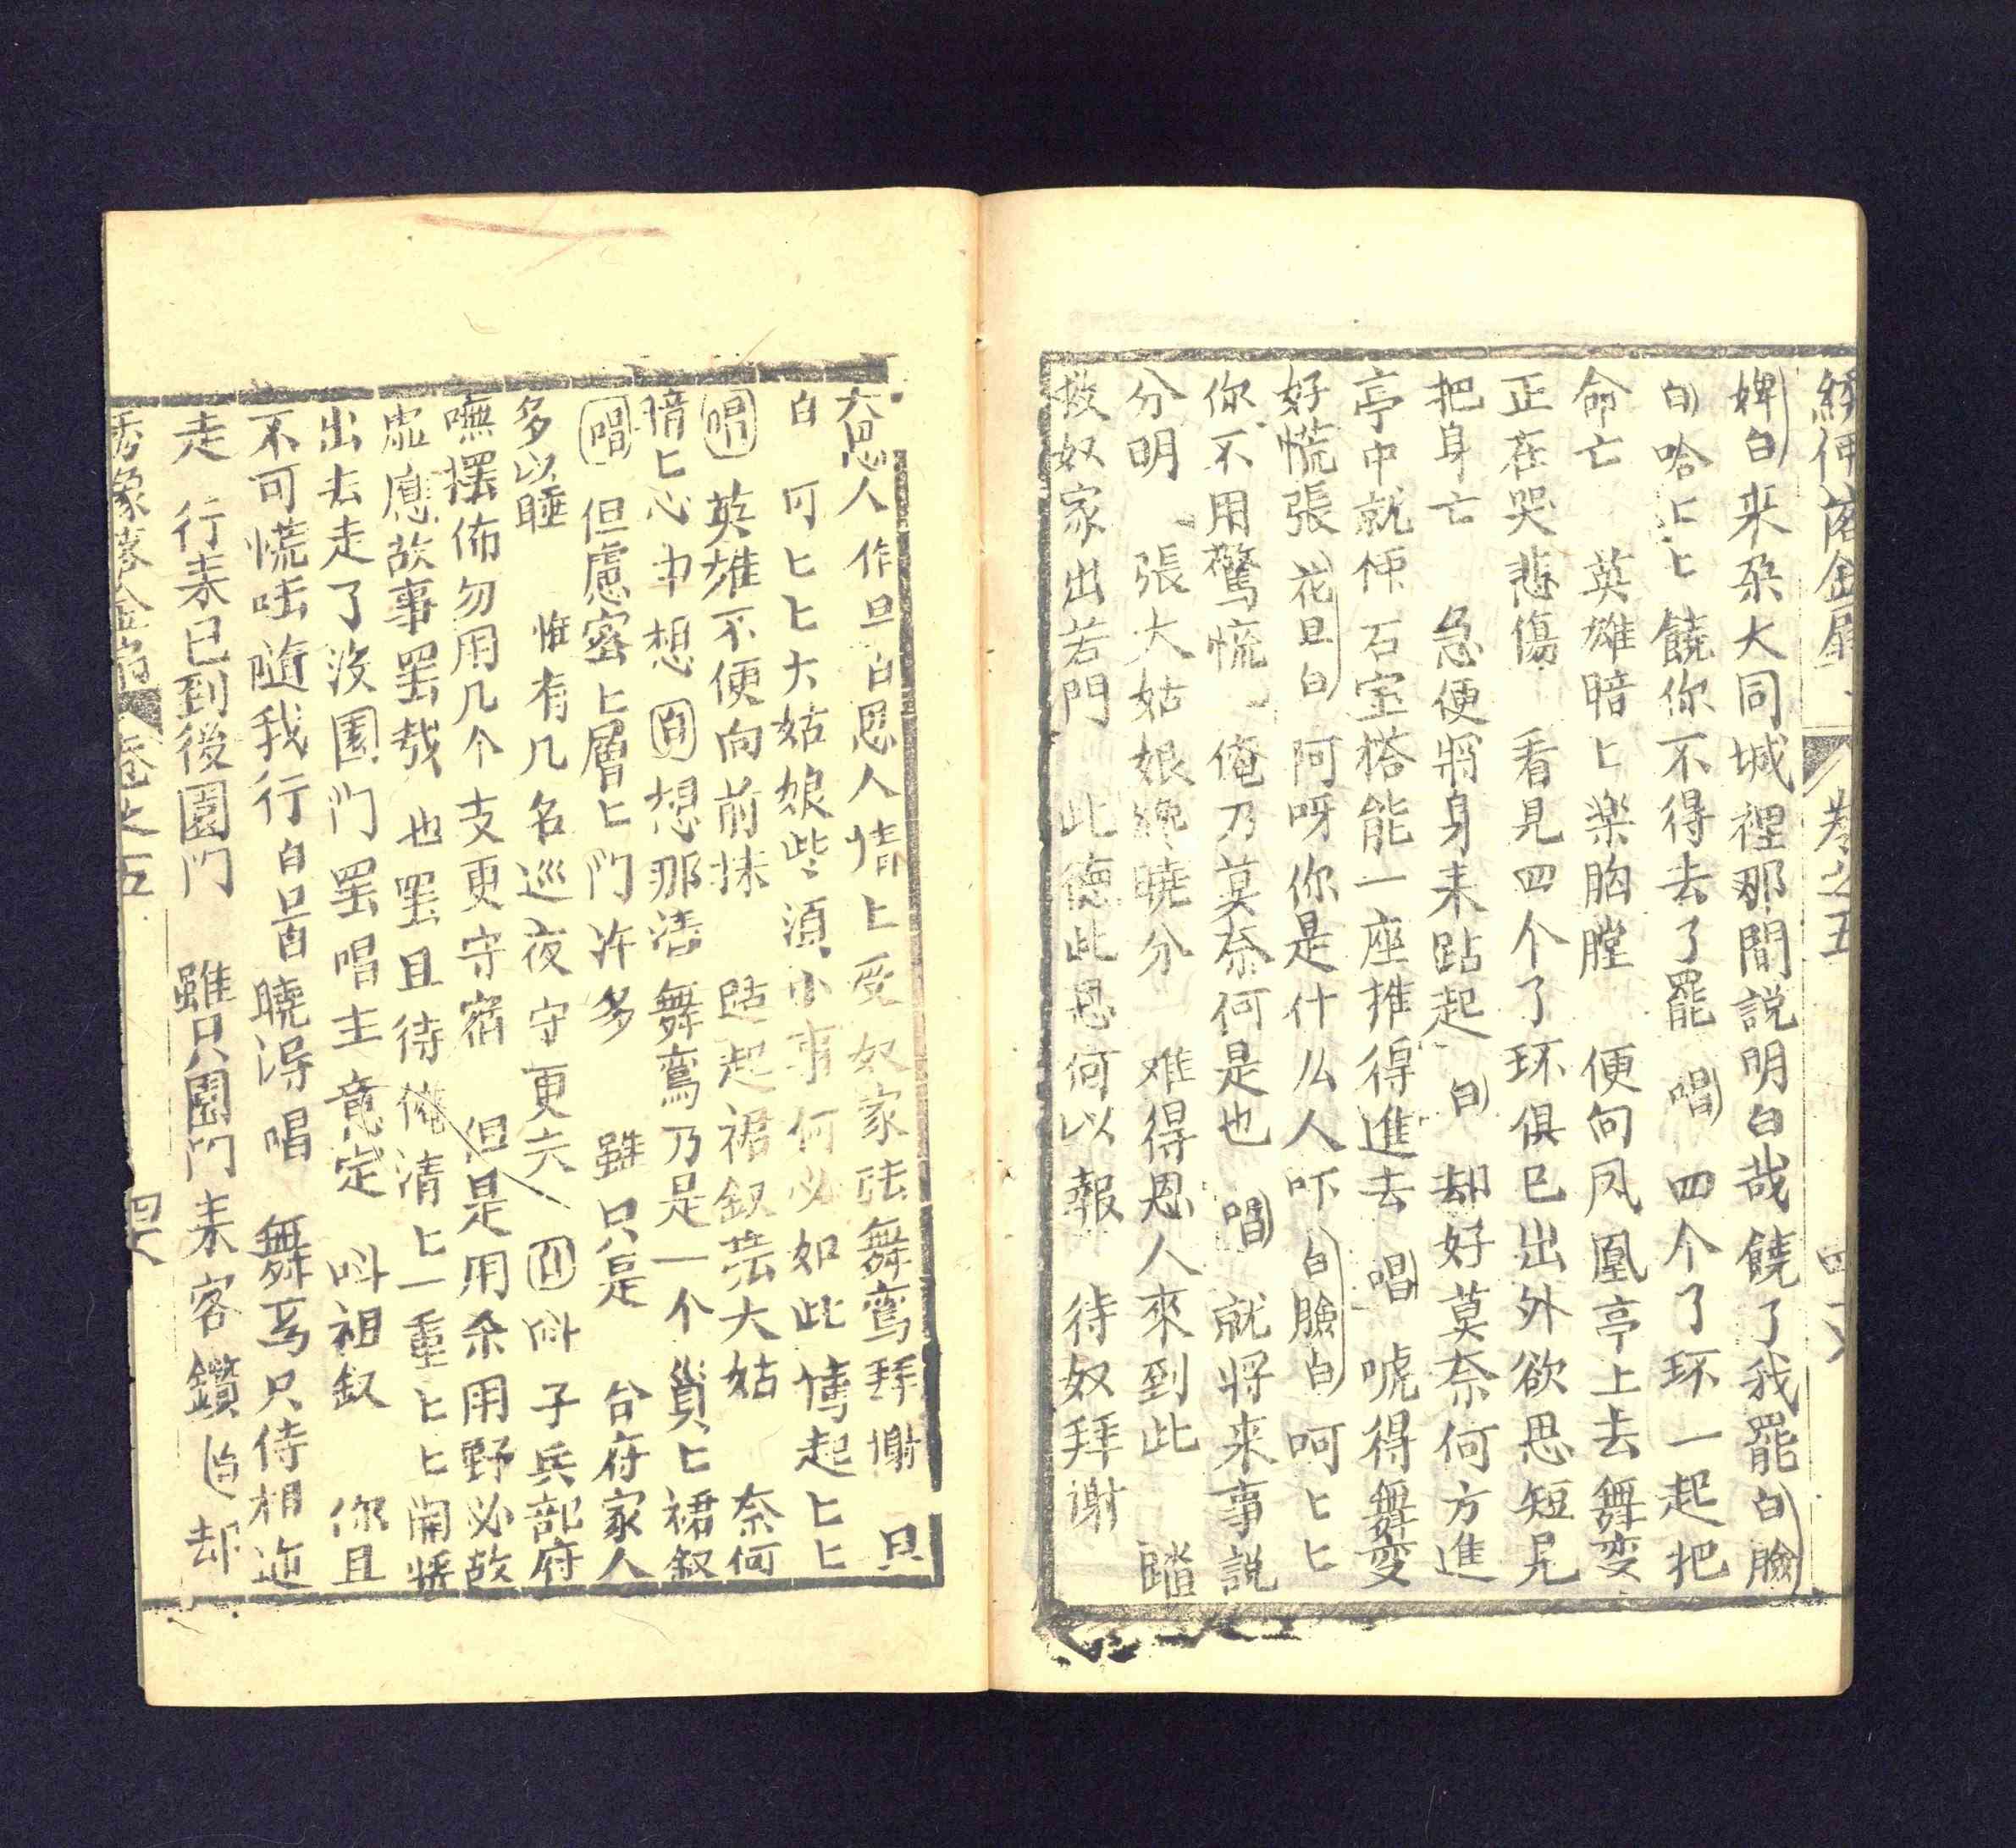 落金扇 卷之五
婢白來朶大同城裡那間説明白哉饒了我罷白臉
白哈匕匕饒你不得去了罷 唱 四个了环一起把
命亡 英雄暗匕樂胸膛 便向凤凰亭上去舞变
正在哭悲傷 看見四个了环俱已出外欲思短見
把身亡 急便將身耒跕起 白 却好莫奈何方進
亭中就伸石宝塔能一座推得進去 唱 唬得舞变
好慌張 花旦白 阿呀你是什么人吓 白臉白 呵匕匕
你不用驚慌 俺乃莫奈何是也 唱 就将来事説
分明 張大姑娘終曉分 难得恩人來到此 踏
救奴家出若門 此德此恩何以報 待奴拜谢
大恩人作旦白恩人情上受奴家張舞鸾拜謝 旦
白 可匕匕大姑娘些須小事何必如此請起匕匕
唱 英雄不便向前抹 跕起裙釵張大姑 奈何
暗匕心中想 白 想那活舞鸾乃是一个巢貟匕裙釵
唱 但慮密匕層匕門许多 雖只是 台府家人
多以睡 惟有几名巡夜守更夫 白 呌子兵部府
嘸擺佈勿用几个支更守宿 但是用余用野必故
虚應故事罢哉 也罢且待俺清匕一重匕匕開將
出去走了没園门罢唱主意定 呌祖釵 你且
不可慌咗隨我行白旦白曉得唱 舞鸾只待相迹
走 行耒已到後園门 雖只園门耒客鑽 白却
秀像落金扇 卷之五